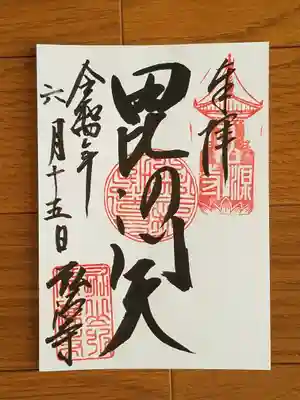 奉拝
毘沙門天
令和四年
六月十五日
弘源寺